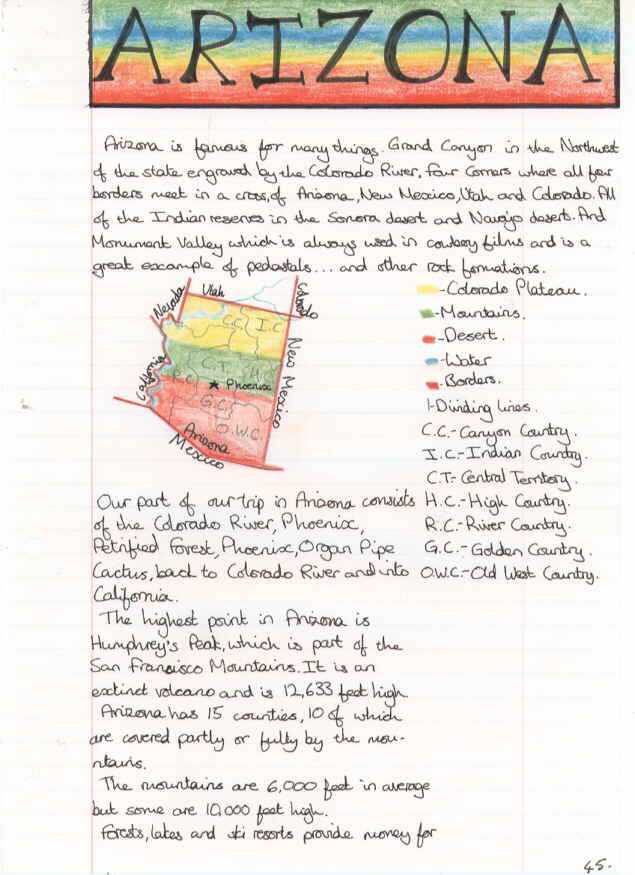 ARIZONA
Arizona is famous for many things. Grand Canyon in the Northwest
of the state engraved by the Colorado River, Four Corners where all four
borders meet in a cross, of Arizona, New Mexico, Utah and Colorado. All
of the Indian reserves in the Sonora desert and Navajo desert. And
Monument Valley which is always used in cowboy films and is a
great excample of pedastals... and other rock formations.
Nevada
Utah
Colorado
C.C.
I.C.
New Mexico
California
C.T.
H.C.
R.C.
Phoenix
G.C.
O.W.C.
Arizona
Mexico
-Colorado Plateau.
-Mountains.
-Desert.
-Water
-Borders.
|-Dividing lines.
C.C.-Canyon Country.
I.C.-Indian Country.
C.T.-Central Territory.
H.C.-High Country.
R.C.-River Country.
G.C.-Golden Country.
O.W.C.-Old West Country.
Our part of our trip in Arizona consists
of the Colorado River, Phoenix,
Petrified Forest, Phoenix, Organ Pipe
Cactus, back to Colorado River and into
California.
The highest point in Arizona is
Humphrey's Peak, which is part of the
San Francisco Mountains. It is an
extinct volcano and is 12,633 feet high
Arizona has 15 counties, 10 of which
are covered partly or fully by the mou-
ntains.
The mountains are 6,000 feet in average
but some are 10,000 feet high.
Forests, lakes and ski resorts provide money for
45.